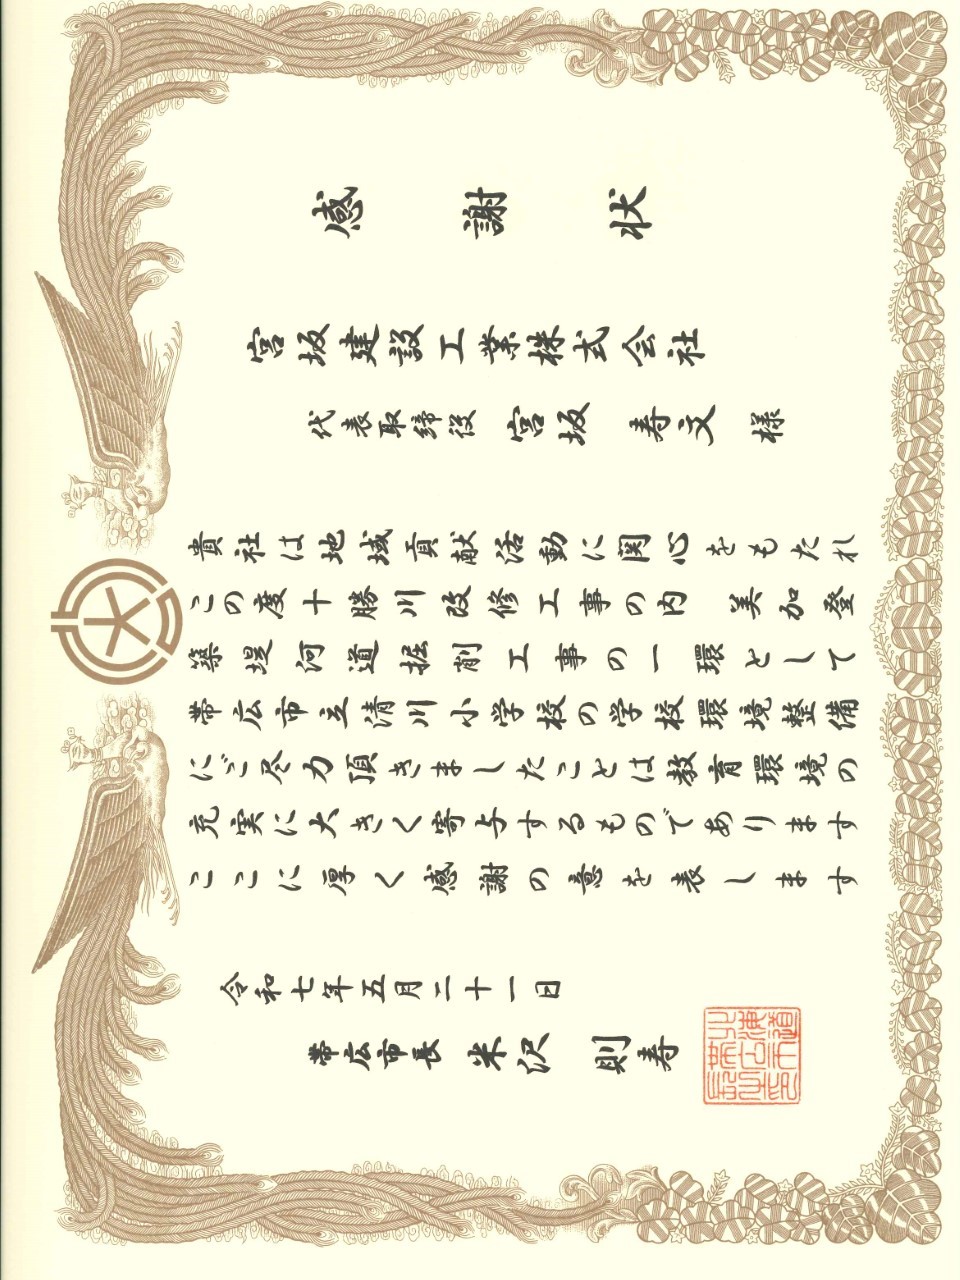 感謝状
宮坂建設工業株式会社
代表取締役 宮坂 寿文 様
貴社は地域貢献活動に関心をもたれ
この度十勝川改修工事の内 美加登
築堤河道掘削工事の一環として
帯広市立清川小学校の学校環境整備
にご尽力頂きましたことは教育環境の
充実に大きく寄与するものであります
ここに厚く感謝の意を表します
令和七年五月二十一日
帯広市長 米沢 則寿